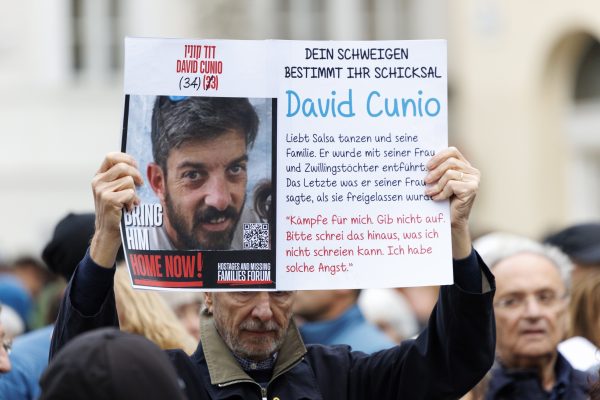 דוד קוניו
DAVID CUNIO
(34) (33)
BRING
HIM
HOME NOW!
HOSTAGES AND MISSING
FAMILIES FORUM
DEIN SCHWEIGEN
BESTIMMT IHR SCHICKSAL
David Cunio
Liebt Salsa tanzen und seine
Familie. Er wurde mit seiner Frau
und Zwillingstöchter entführt.
Das Letzte was er seiner Frau
sagte, als sie freigelassen wurde
"Kämpfe für mich. Gib nicht auf.
Bitte schrei das hinaus, was ich
nicht schreien kann. Ich habe
solche Angst."